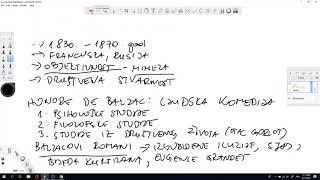 -> 1830. - 1870. god
-> FRANCUSKA, RUSIJA
-> OBJEKTIVNOST - MIMEZA
-> DRUŠTVENA STVARNOST
HONORE DE BALZAC: LJUDSKA KOMEDIJA
1. PSIHOLOŠKE STUDIJE
2. FILOZOFSKE STUDIJE
3. STUDIJE IZ DRUŠTVENOG ŽIVOTA (OTAC GORIOT)
BALZACOVI ROMANI -> IZGUBLJENE ILUZIJE, SJAJ,
BIJEDA KURTIZANA, EUGENIE GRANDET